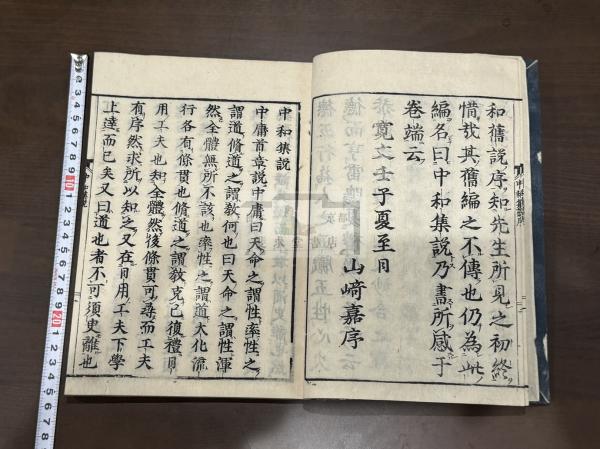 和舊說序知先生所見之初終
惜哉其舊編之不傳也仍為此
編名曰中和集說乃盡所感于
卷端云
寬文壬子夏至日
山﨑嘉序
中和集說
中庸首章說中庸曰天命之謂性率性之
謂道脩道之謂敎何也曰天命之謂性渾
然全體無所不該也率性之謂道大化流
行各有條貫也脩道之謂敎克己復禮日
用工夫也知全體然後條貫可尋而工夫
有序然求所以知之又在日用工夫下學
上達而已矣又曰道也者不可須臾離也